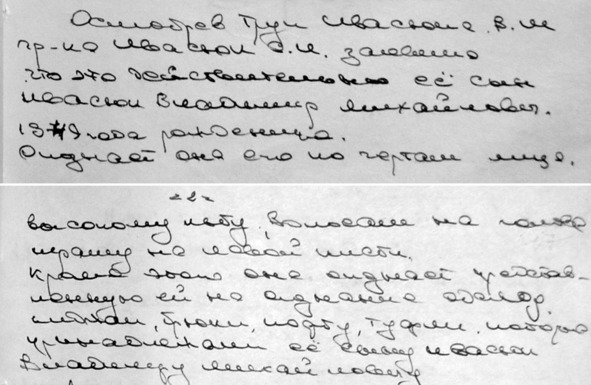 Осмотрев труп Ивасюка В.М
гр-ка Ивасюк С.И. заявила
что это действительно её сын
Ивасюк Владимир Михайлович.
1949 года рождения.
Опознаёт она его по чертам лица.
-2-
высокому лбу, волосам на голове
шраму на левой кисти.
Кроме этого она опознаёт представ-
ленную ей на опознание одежду.
плащ, брюки, кофту, туфли, которые
принадлежали её сыну Ивасюк
Владимиру Михайловичу